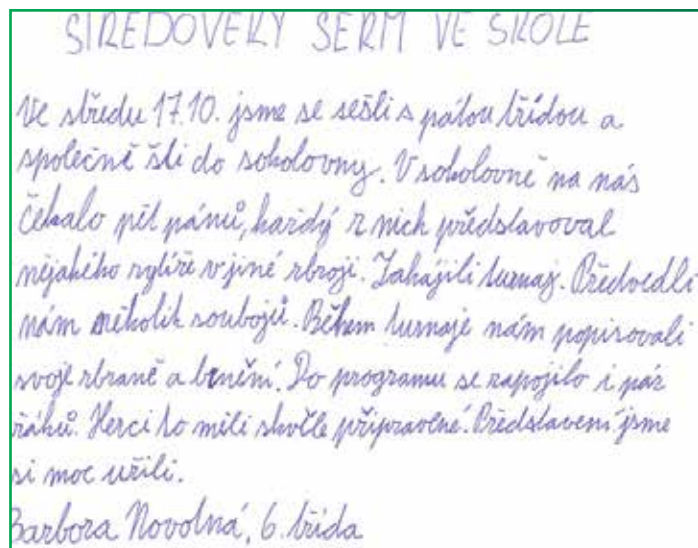 STŘEDOVĚKÝ ŠERM VE ŠKOLE
Ve středu 17.10. jsme se sešli s pátou třídou a
společně šli do sokolovny. V sokolovně na nás
čekalo pět pánů, každý z nich představoval
nějakého rytíře v jiné zbroji. Zahájili turnaj. Předvedli
nám několik soubojů. Během turnaje nám popisovali
svoje zbraně a brnění. Do programu se zapojilo i pár
žáků. Herci to měli skvěle připravené. Představení jsme
si moc užili.
Barbora Novotná, 6. třída